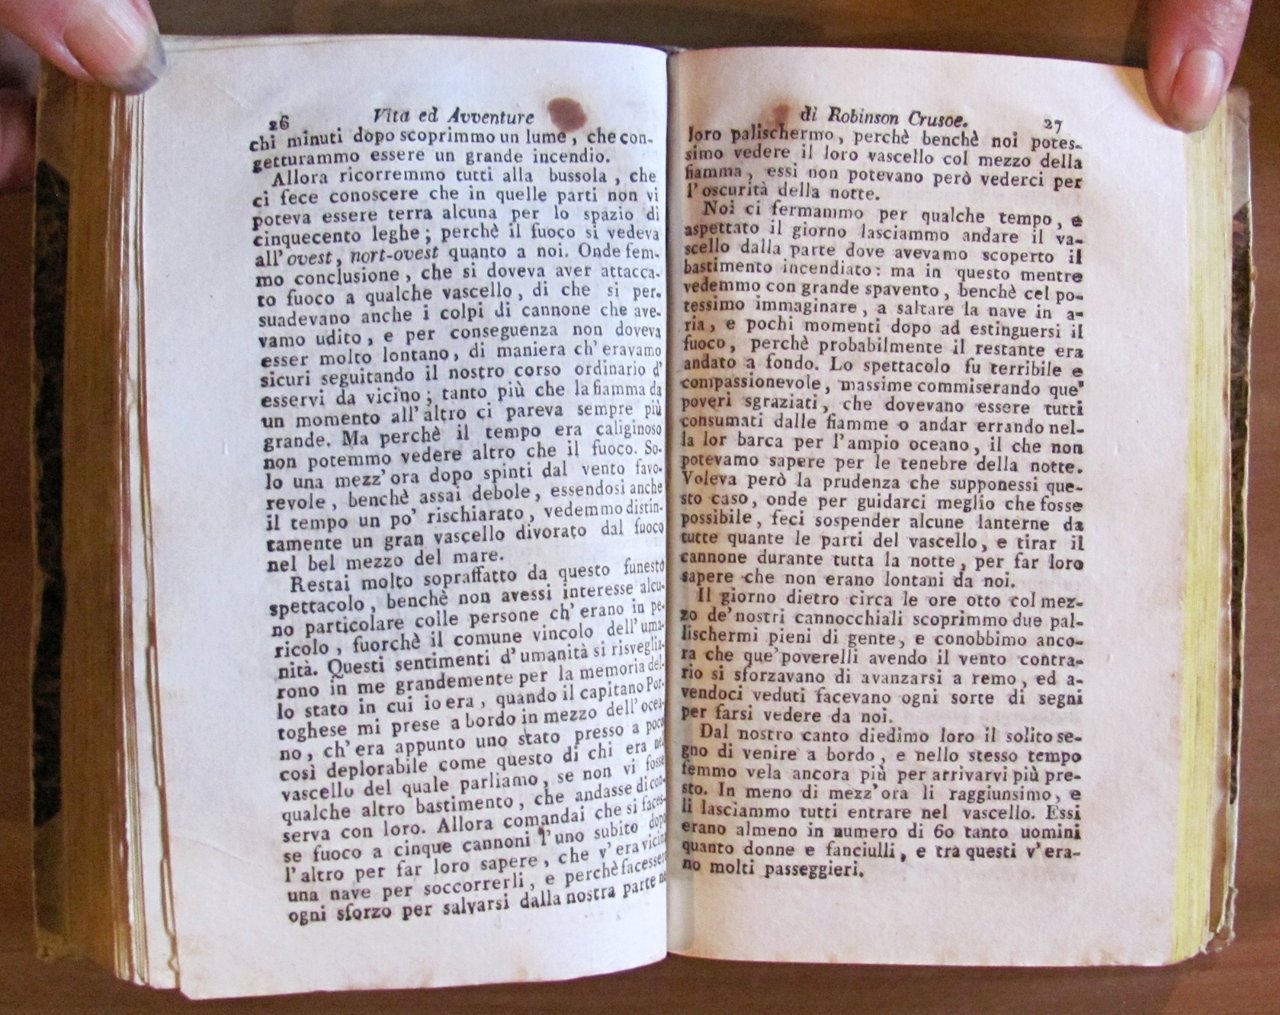 26 Vita ed Avventure
chi minuti dopo scoprimmo un lume, che con-
getturammo essere un grande incendio.
Allora ricorremmo tutti alla bussola, che
ci fece conoscere che in quelle parti non vi
poteva essere terra alcuna per lo spazio di
cinquecento leghe; perchè il fuoco si vedeva
all'ovest, nort-ovest quanto a noi. Onde fem-
mo conclusione, che si doveva aver attacca-
to fuoco a qualche vascello, di che si per.
suadevano anche i colpi di cannone che ave-
vamo udito, e per conseguenza non doveva
esser molto lontano, di maniera ch'eravamo
sicuri seguitando il nostro corso ordinario d'
esservi da vicino; tanto più che la fiamma da
un momento all'altro ci pareva sempre più
grande. Ma perchè il tempo era caliginoso
non potemmo vedere altro che il fuoco. So-
lo una mezz'ora dopo spinti dal vento favo-
revole, benchè assai debole, essendosi anche
il tempo un po' rischiarato, vedemmo distin-
tamente un gran vascello divorato dal fuoco
nel bel mezzo del mare.
Restai molto sopraffatto da questo funesto
spettacolo, benchè non avessi interesse alcu-
no particolare colle persone ch'erano in pe-
ricolo, fuorchè il comune vincolo dell'uma-
nità. Questi sentimenti d'umanità si risveglia-
rono in me grandemente per la memoria del-
lo stato in cui io era, quando il capitano Por-
toghese mi prese a bordo in mezzo dell'ocea-
no, ch'era appunto uno stato presso a poco
così deplorabile come questo di chi era nel
vascello del quale parliamo, se non vi fosse
qualche altro bastimento, che andasse di con-
serva con loro. Allora comandai che si faces-
se fuoco a cinque cannoni l'uno subito dopo
l'altro per far loro sapere, che v'era vicin
una nave per soccorrerli, e perchè facesser
ogni sforzo per salvarsi dalla nostra parte ne
di Robinson Crusoe. 27
loro palischermo, perchè benchè noi potes-
simo vedere il loro vascello col mezzo della
fiamma, essi non potevano però vederci per
l'oscurità della notte.
Noi ci fermammo per qualche tempo, e
aspettato il giorno lasciammo andare il va-
scello dalla parte dove avevamo scoperto il
bastimento incendiato: ma in questo mentre
vedemmo con grande spavento, benchè cel po-
tessimo immaginare, a saltare la nave in a-
ria, e pochi momenti dopo ad estinguersi il
fuoco, perchè probabilmente il restante era
andato a fondo. Lo spettacolo fu terribile e
compassionevole, massime commiserando que'
poveri sgraziati, che dovevano essere tutti
consumati dalle fiamme o andar errando nel-
la lor barca per l'ampio oceano, il che non
potevamo sapere per le tenebre della notte.
Voleva però la prudenza che supponessi que-
sto caso, onde per guidarci meglio che fosse
possibile, feci sospender alcune lanterne da
tutte quante le parti del vascello, e tirar il
cannone durante tutta la notte, per far loro
sapere che non erano lontani da noi.
Il giorno dietro circa le ore otto col mez-
zo de'nostri cannocchiali scoprimmo due pal-
lischermi pieni di gente, e conobbimo anco-
ra che que'poverelli avendo il vento contra-
rio si sforzavano di avanzarsi a remo, ed a-
vendoci veduti facevano ogni sorte di segni
per farsi vedere da noi.
Dal nostro canto diedimo loro il solito se-
gno di venire a bordo, e nello stesso tempo
femmo vela ancora più per arrivarvi più pre-
sto. In meno di mezz'ora li raggiunsimo, e
li lasciammo tutti entrare nel vascello. Essi
erano almeno in numero di 60 tanto uomini
quanto donne e fanciulli, e tra questi v'era-
no molti passeggieri.